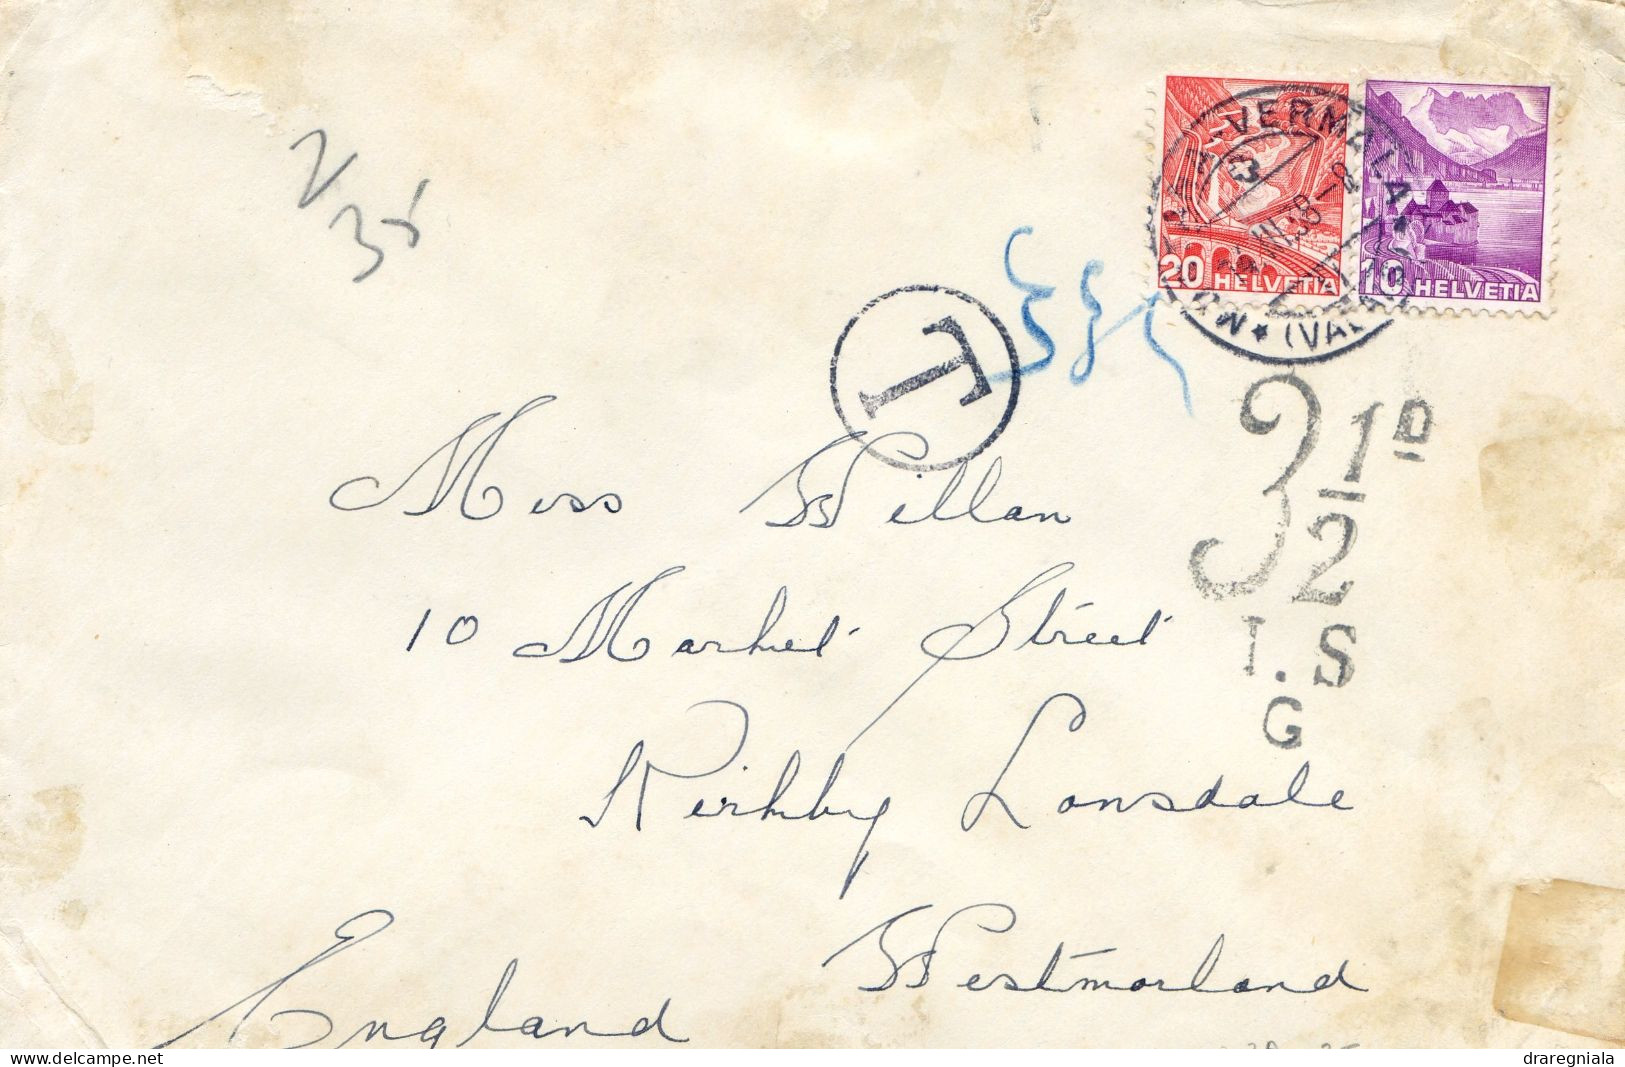 2
35
VERMALA
MO
(VAL
III.38-8
20 HELVETIA
10 HELVETIA
T
3 1/2 D
I.S
G
Miss Willan
10 Market Street
Kirkby Lonsdale
Westmorland
England
www.delcampe.net
draregniala